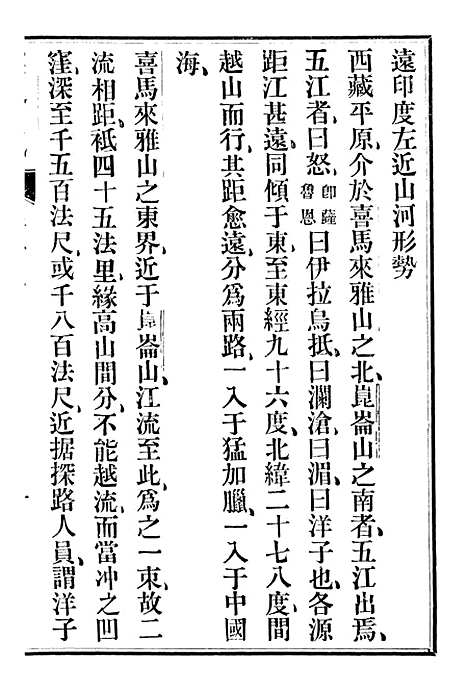 遠印度左近山河形勢
西藏平原介於喜馬來雅山之北、崑崙山之南者、五江出焉、
五江者、曰怒、卽薩魯恩曰伊拉烏抵、曰瀾滄、曰湄、曰洋子也、各源
距江甚遠、同傾于東、至東經九十六度、北緯二十七八度、間
越山而行、其距愈遠、分爲兩路、一入于猛加臘、一入于中國
海、
喜馬來雅山之東界、近于崑崙山、江流至此、爲之一束、故二
流相距、衹四十五法里、緣高山間分、不能越流、而當冲之凹
窪、深至千五百法尺、或千八百法尺、近据探路人員、謂洋子